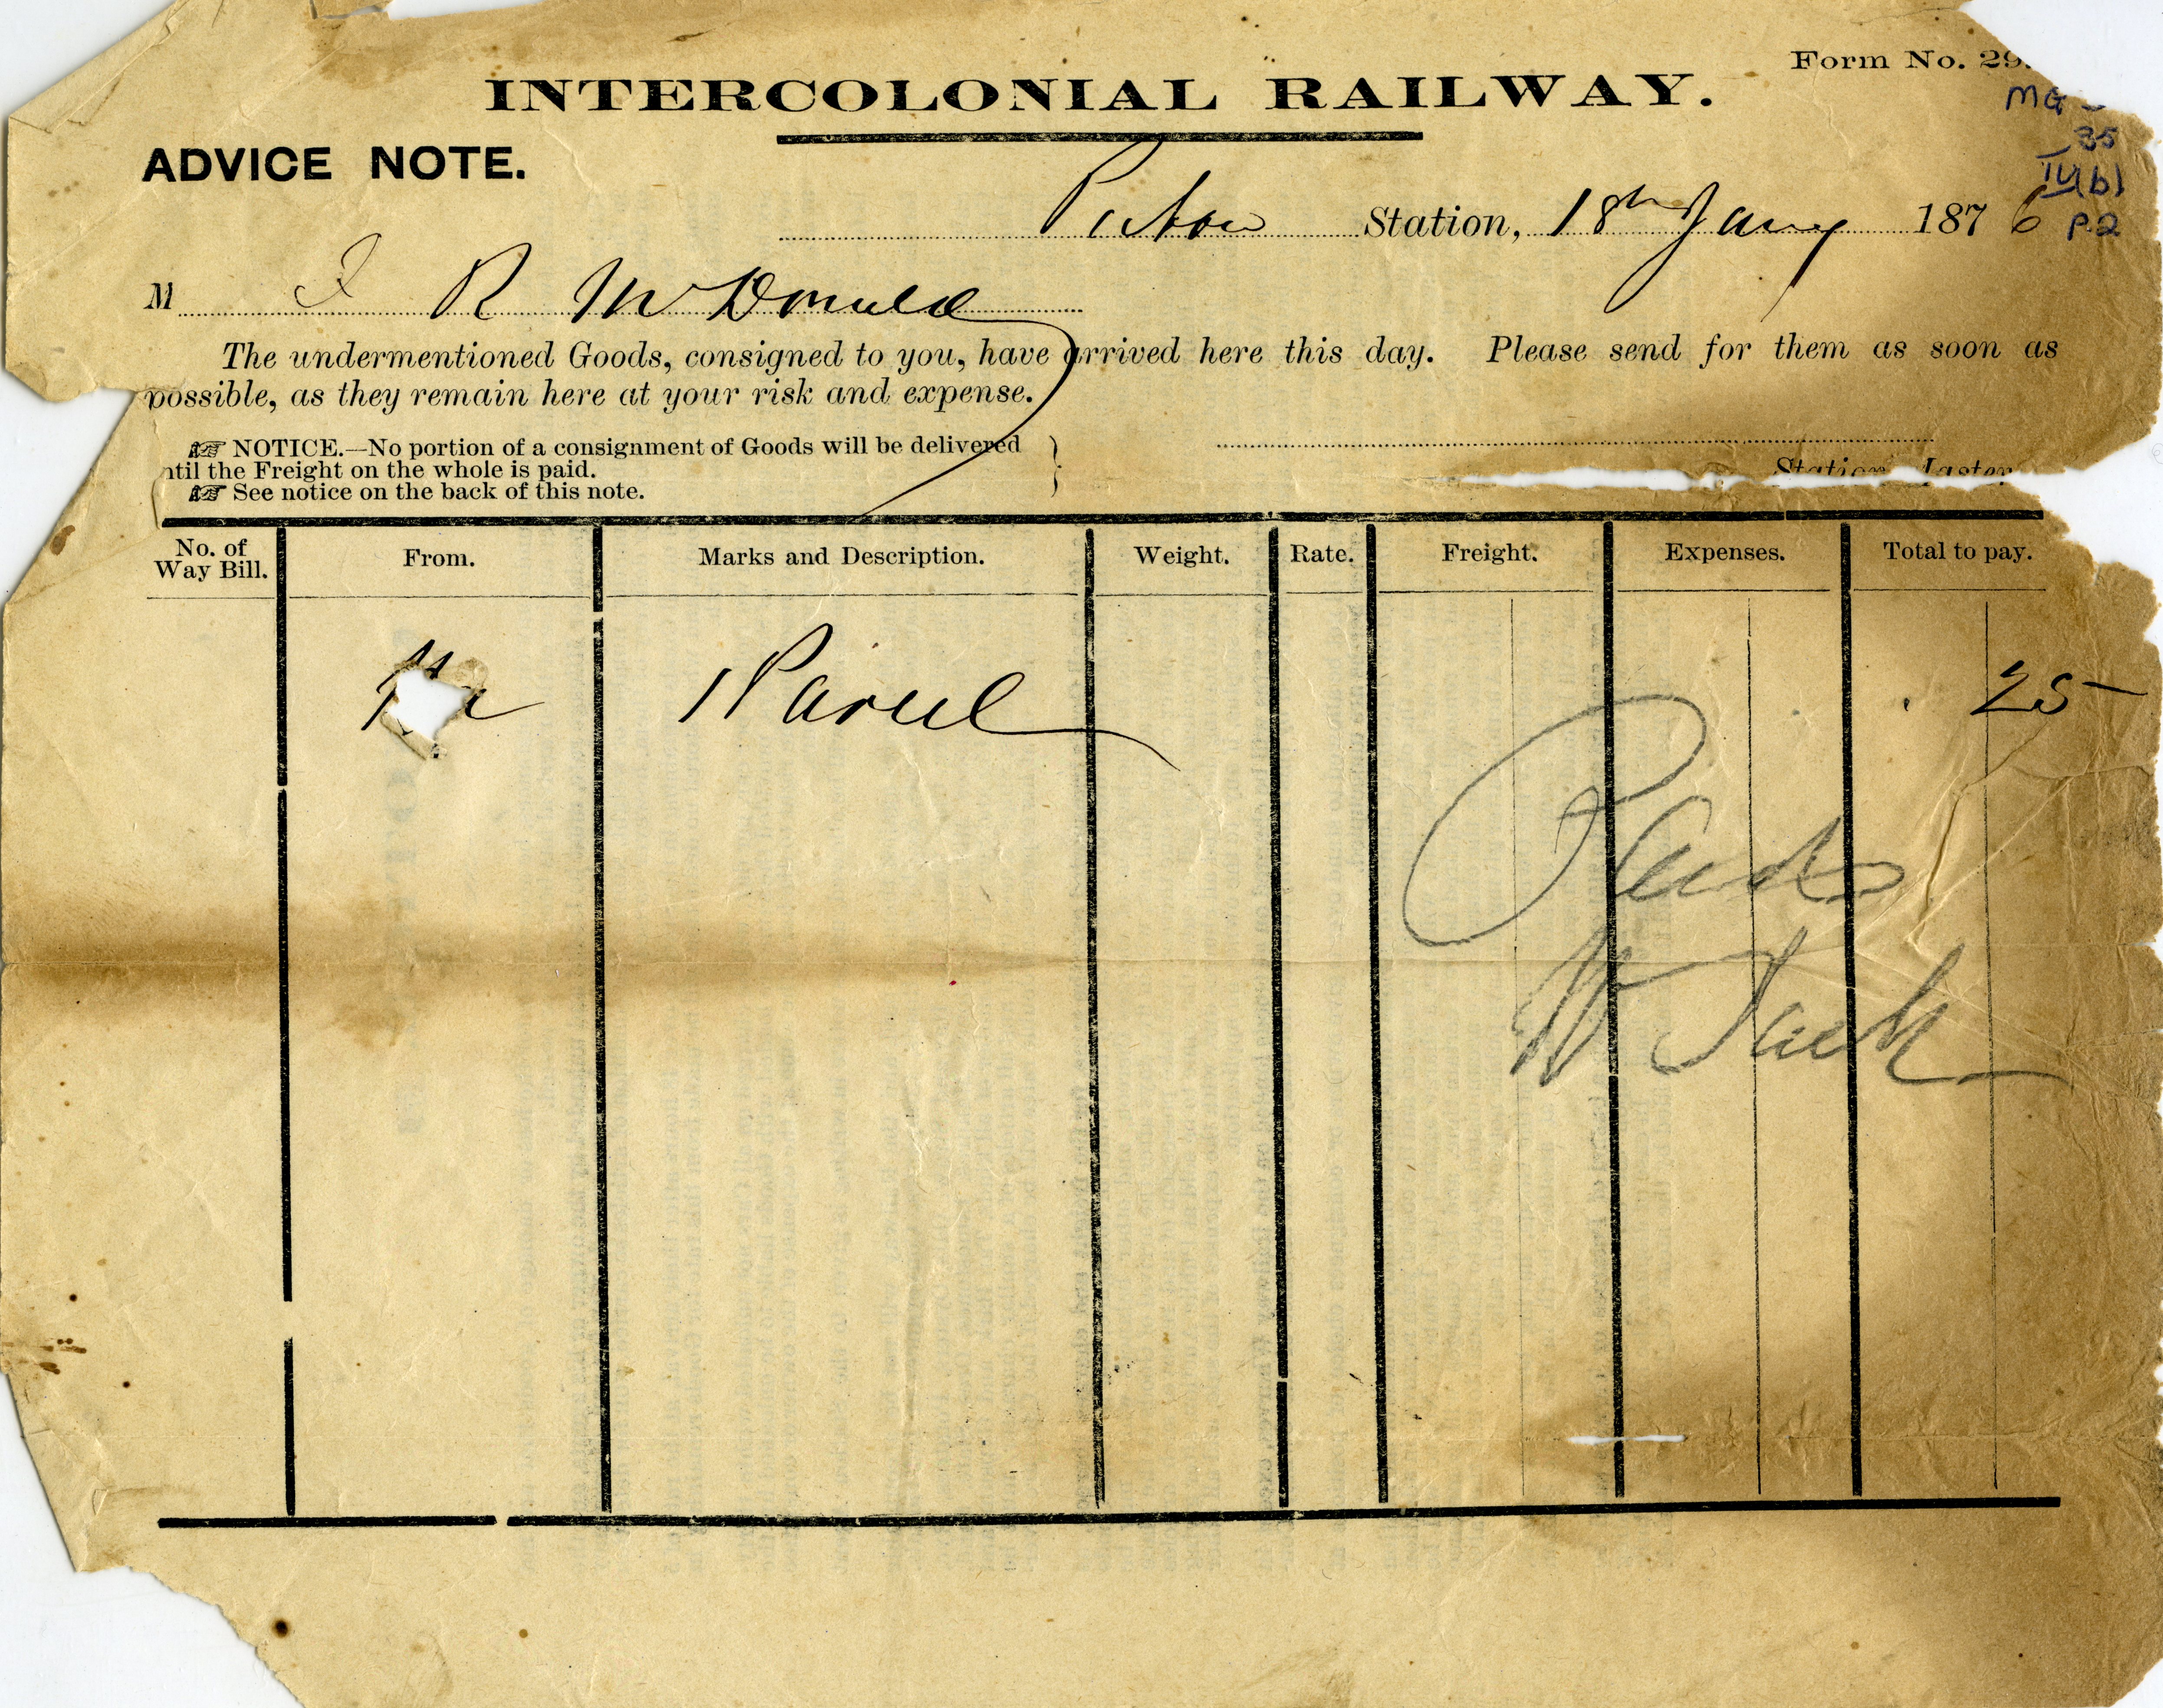 Form No. 29.
INTERCOLONIAL RAILWAY.
MG -
35
IV(b)
P.2
ADVICE NOTE.
Pictou Station, 18th Jany 1876
M J R McDonald
The undermentioned Goods, consigned to you, have arrived here this day. Please send for them as soon as
possible, as they remain here at your risk and expense.
NOTICE.—No portion of a consignment of Goods will be delivered
ntil the Freight on the whole is paid.
See notice on the back of this note.
Station Master
No. of Way Bill. From. Marks and Description. Weight. Rate. Freight. Expenses. Total to pay.
1 Parcel 25
Paid
W Jack